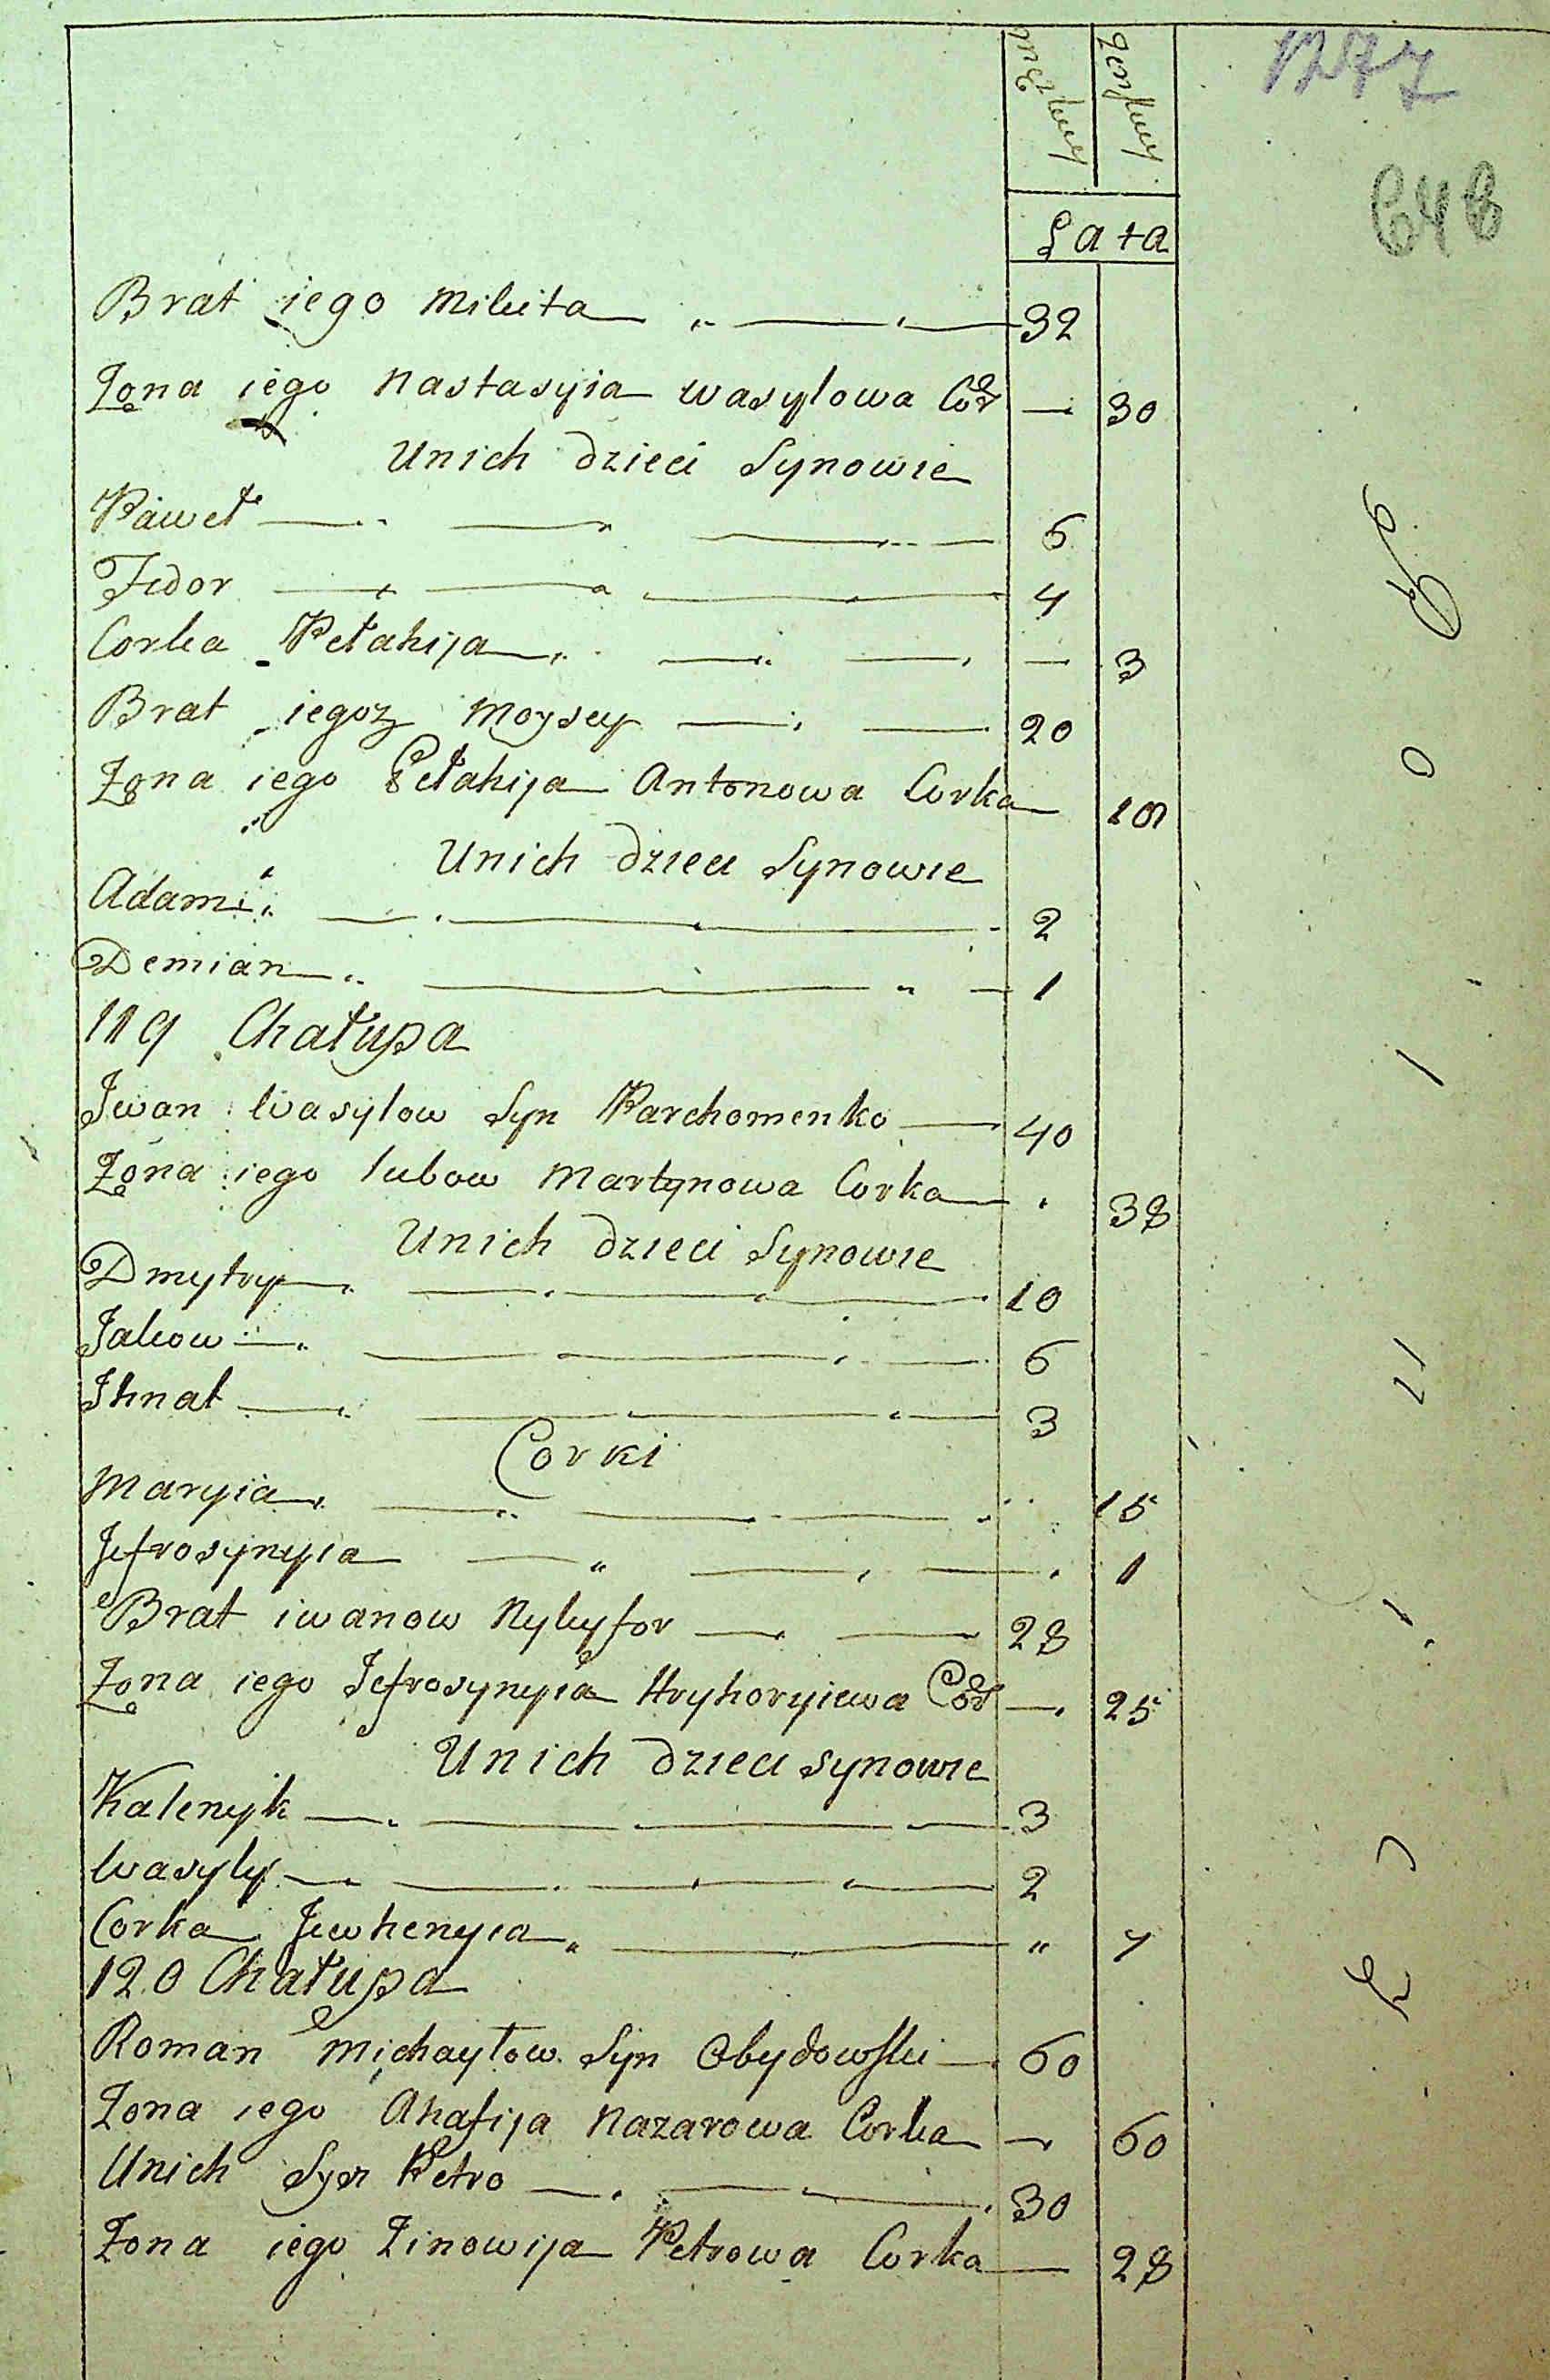 męzkiey żenskiey
1277
648
Łata
Brat iego Mikita 32
Zona iego Nastasyia Wasylowa Cor 30
Unich dzieci Synowie
Paweł 6
Fedor 4
Corka Pełahija 3
Brat iegoz Moysey 20
Zona iego Pełahija Antonowa Corka
Unich dzieci Synowie
Adam 2
Demian 1
119 Chałupa
Iwan Wasylow Syn Parchomenko 40
Zona iego lubow Martynowa Corka 38
Unich dzieci Synowie
Dmytry 10
Jakow 6
Ihnat 3
Corki
Maryia 15
Jefrosynyia 1
Brat iwanow Nykyfor 28
Zona iego Jefrosynyia Hryhoryiewa Cor 25
Unich dzieci synowie
Kalenyk 3
Wasyly 2
Corka Jewhenyia 7
120 Chałupa
Roman Michayłow Syn Obydowski 60
Zona iego Ahafija Nazarowa Corka 60
Unich Syn Petro 30
Zona iego Zinowija Petrowa Corka 28